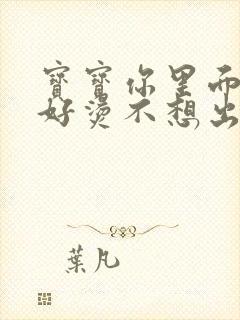 寶寶你里面
好燙不想出
葉凡